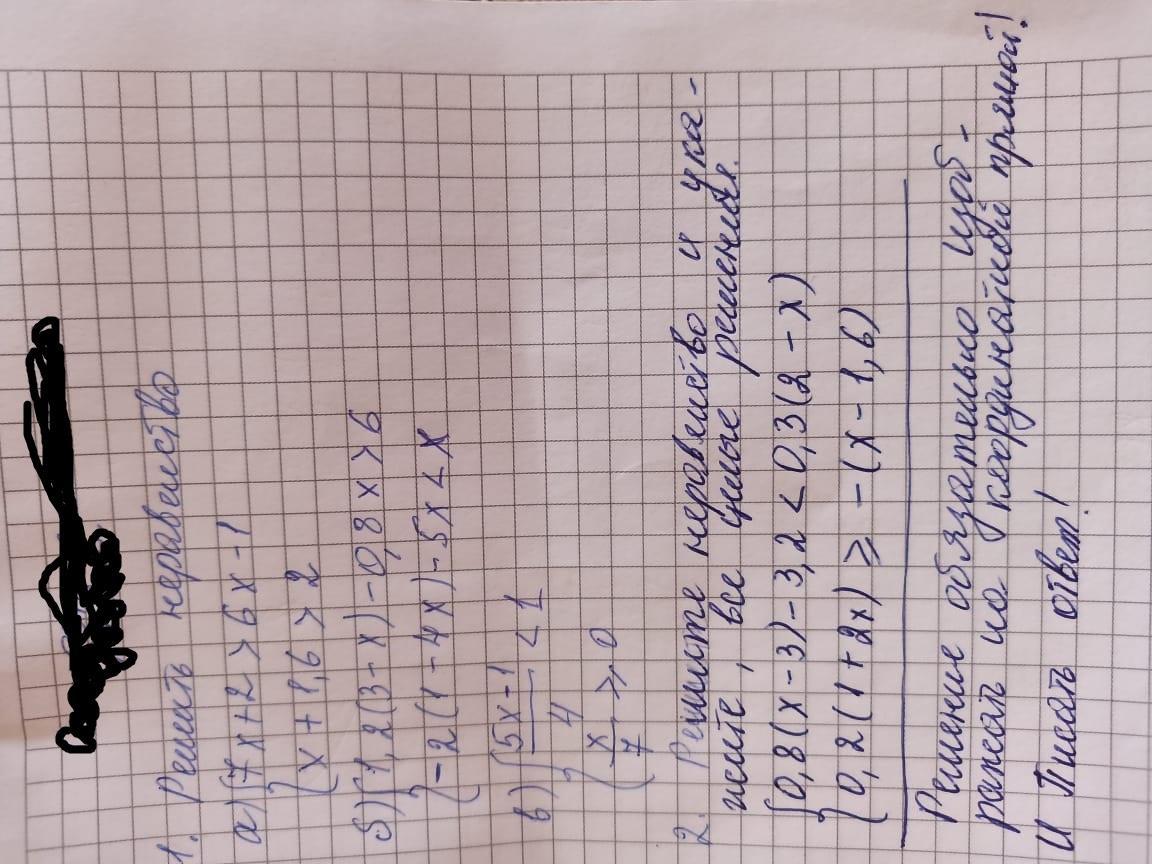 1. Решить неравенство
а) { 7x+2 > 6x-1
{ x+1,6 > 2
б) { 1,2(3-x)-0,8x>6
{ -2(1-4x)-5x<x
в) { (5x-1)/4 < 1
{ x/7 ⩾ 0
2. Решите неравенство и ука-
жите, все целые решения.
{ 0,8(x-3)-3,2 < 0,3(2-x)
{ 0,2(1+2x) ⩾ -(x-1,6)
Решение обязательно изоб-
ражать на координатной прямой!
И Писать ответ!